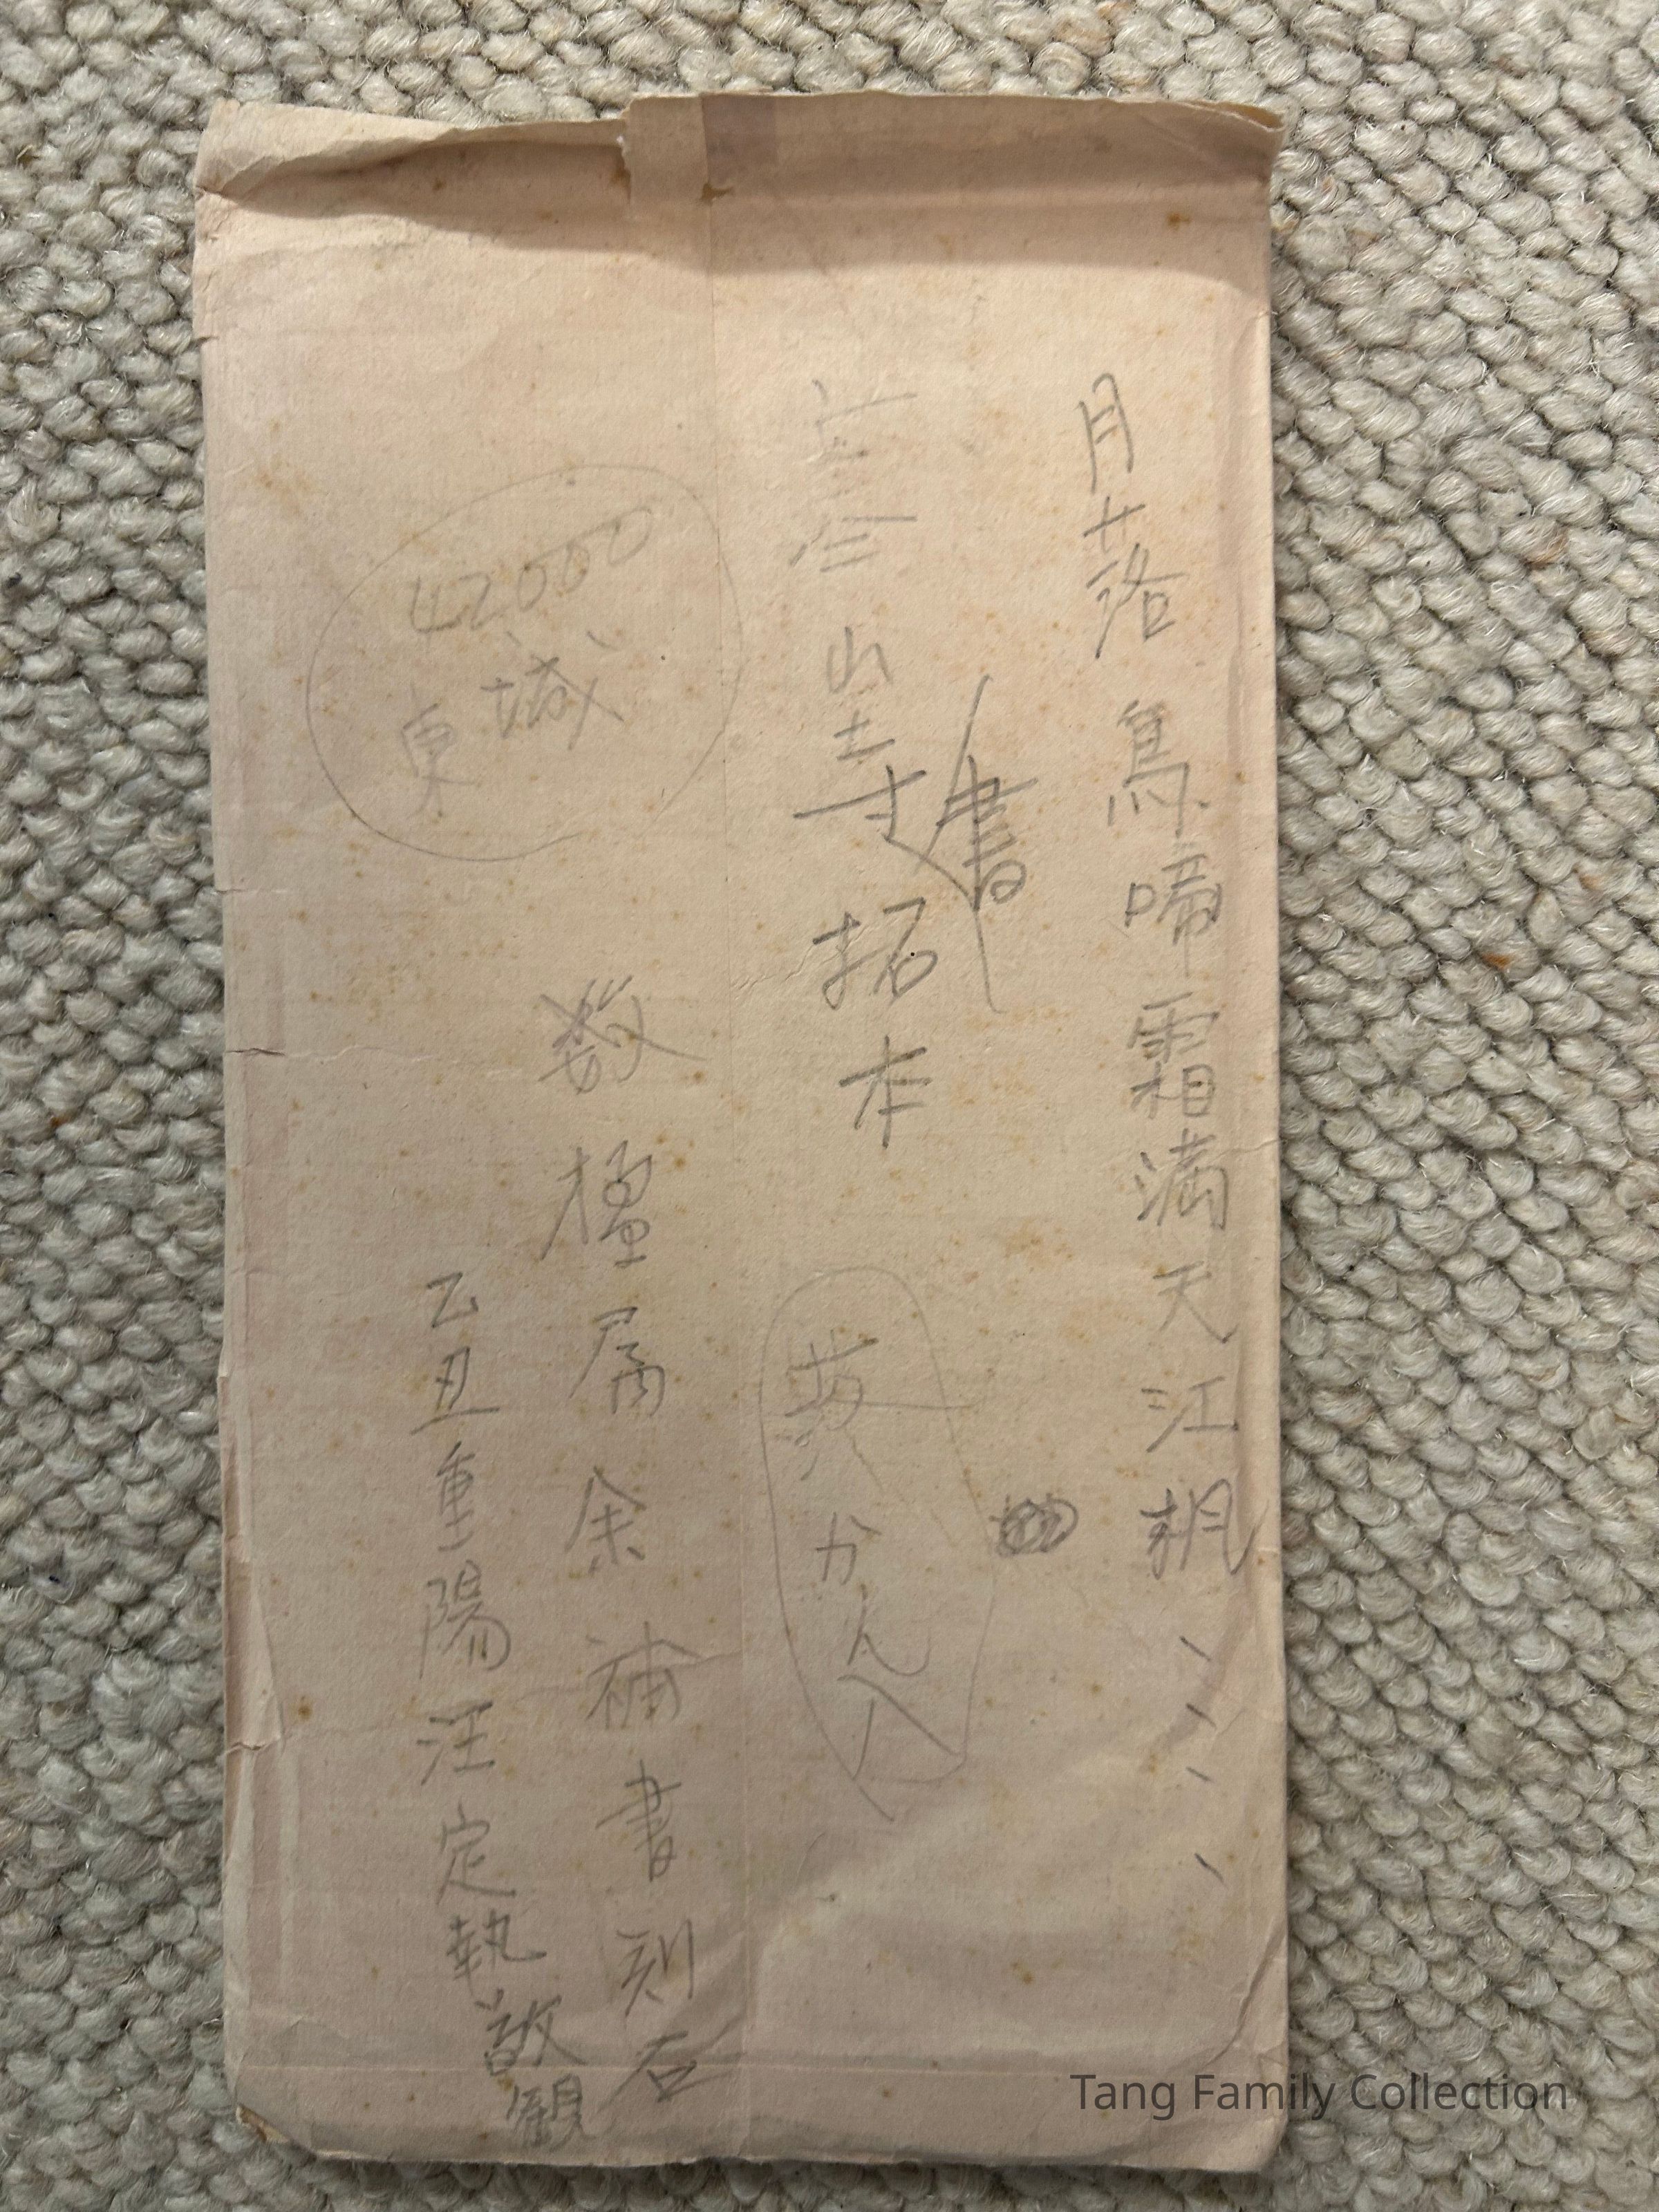 月落烏啼霜満天江楓、、、、
書
寒山寺拓本
英かん入
42000
東城
数楹属余補書刻石
乙丑重陽汪定執敬観
Tang Family Collection